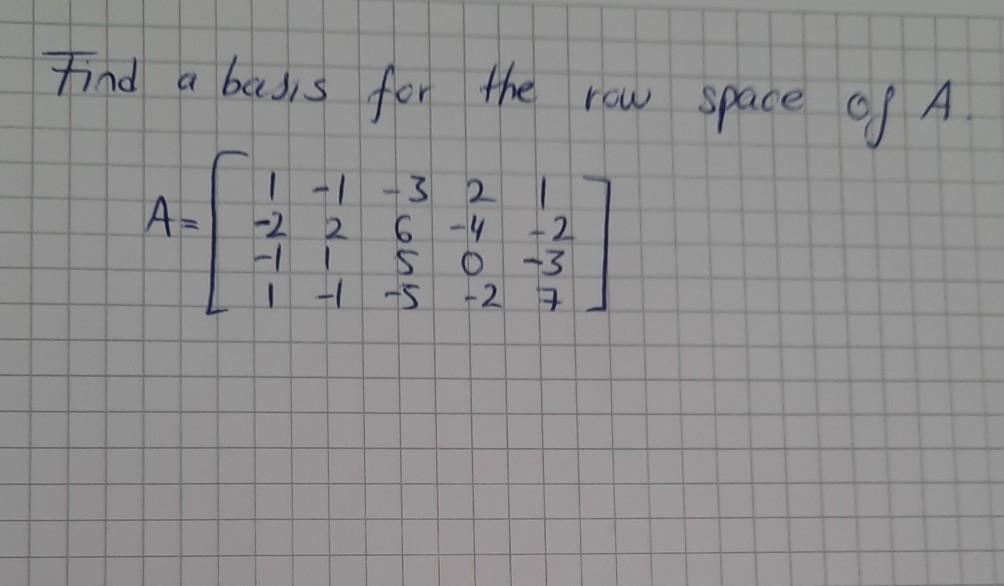 Find a basis for the row space of A.
A= [ 1 -1 -3 2 1
-2 2 6 -4 -2
-1 1 5 0 -3
1 -1 -5 -2 7 ]